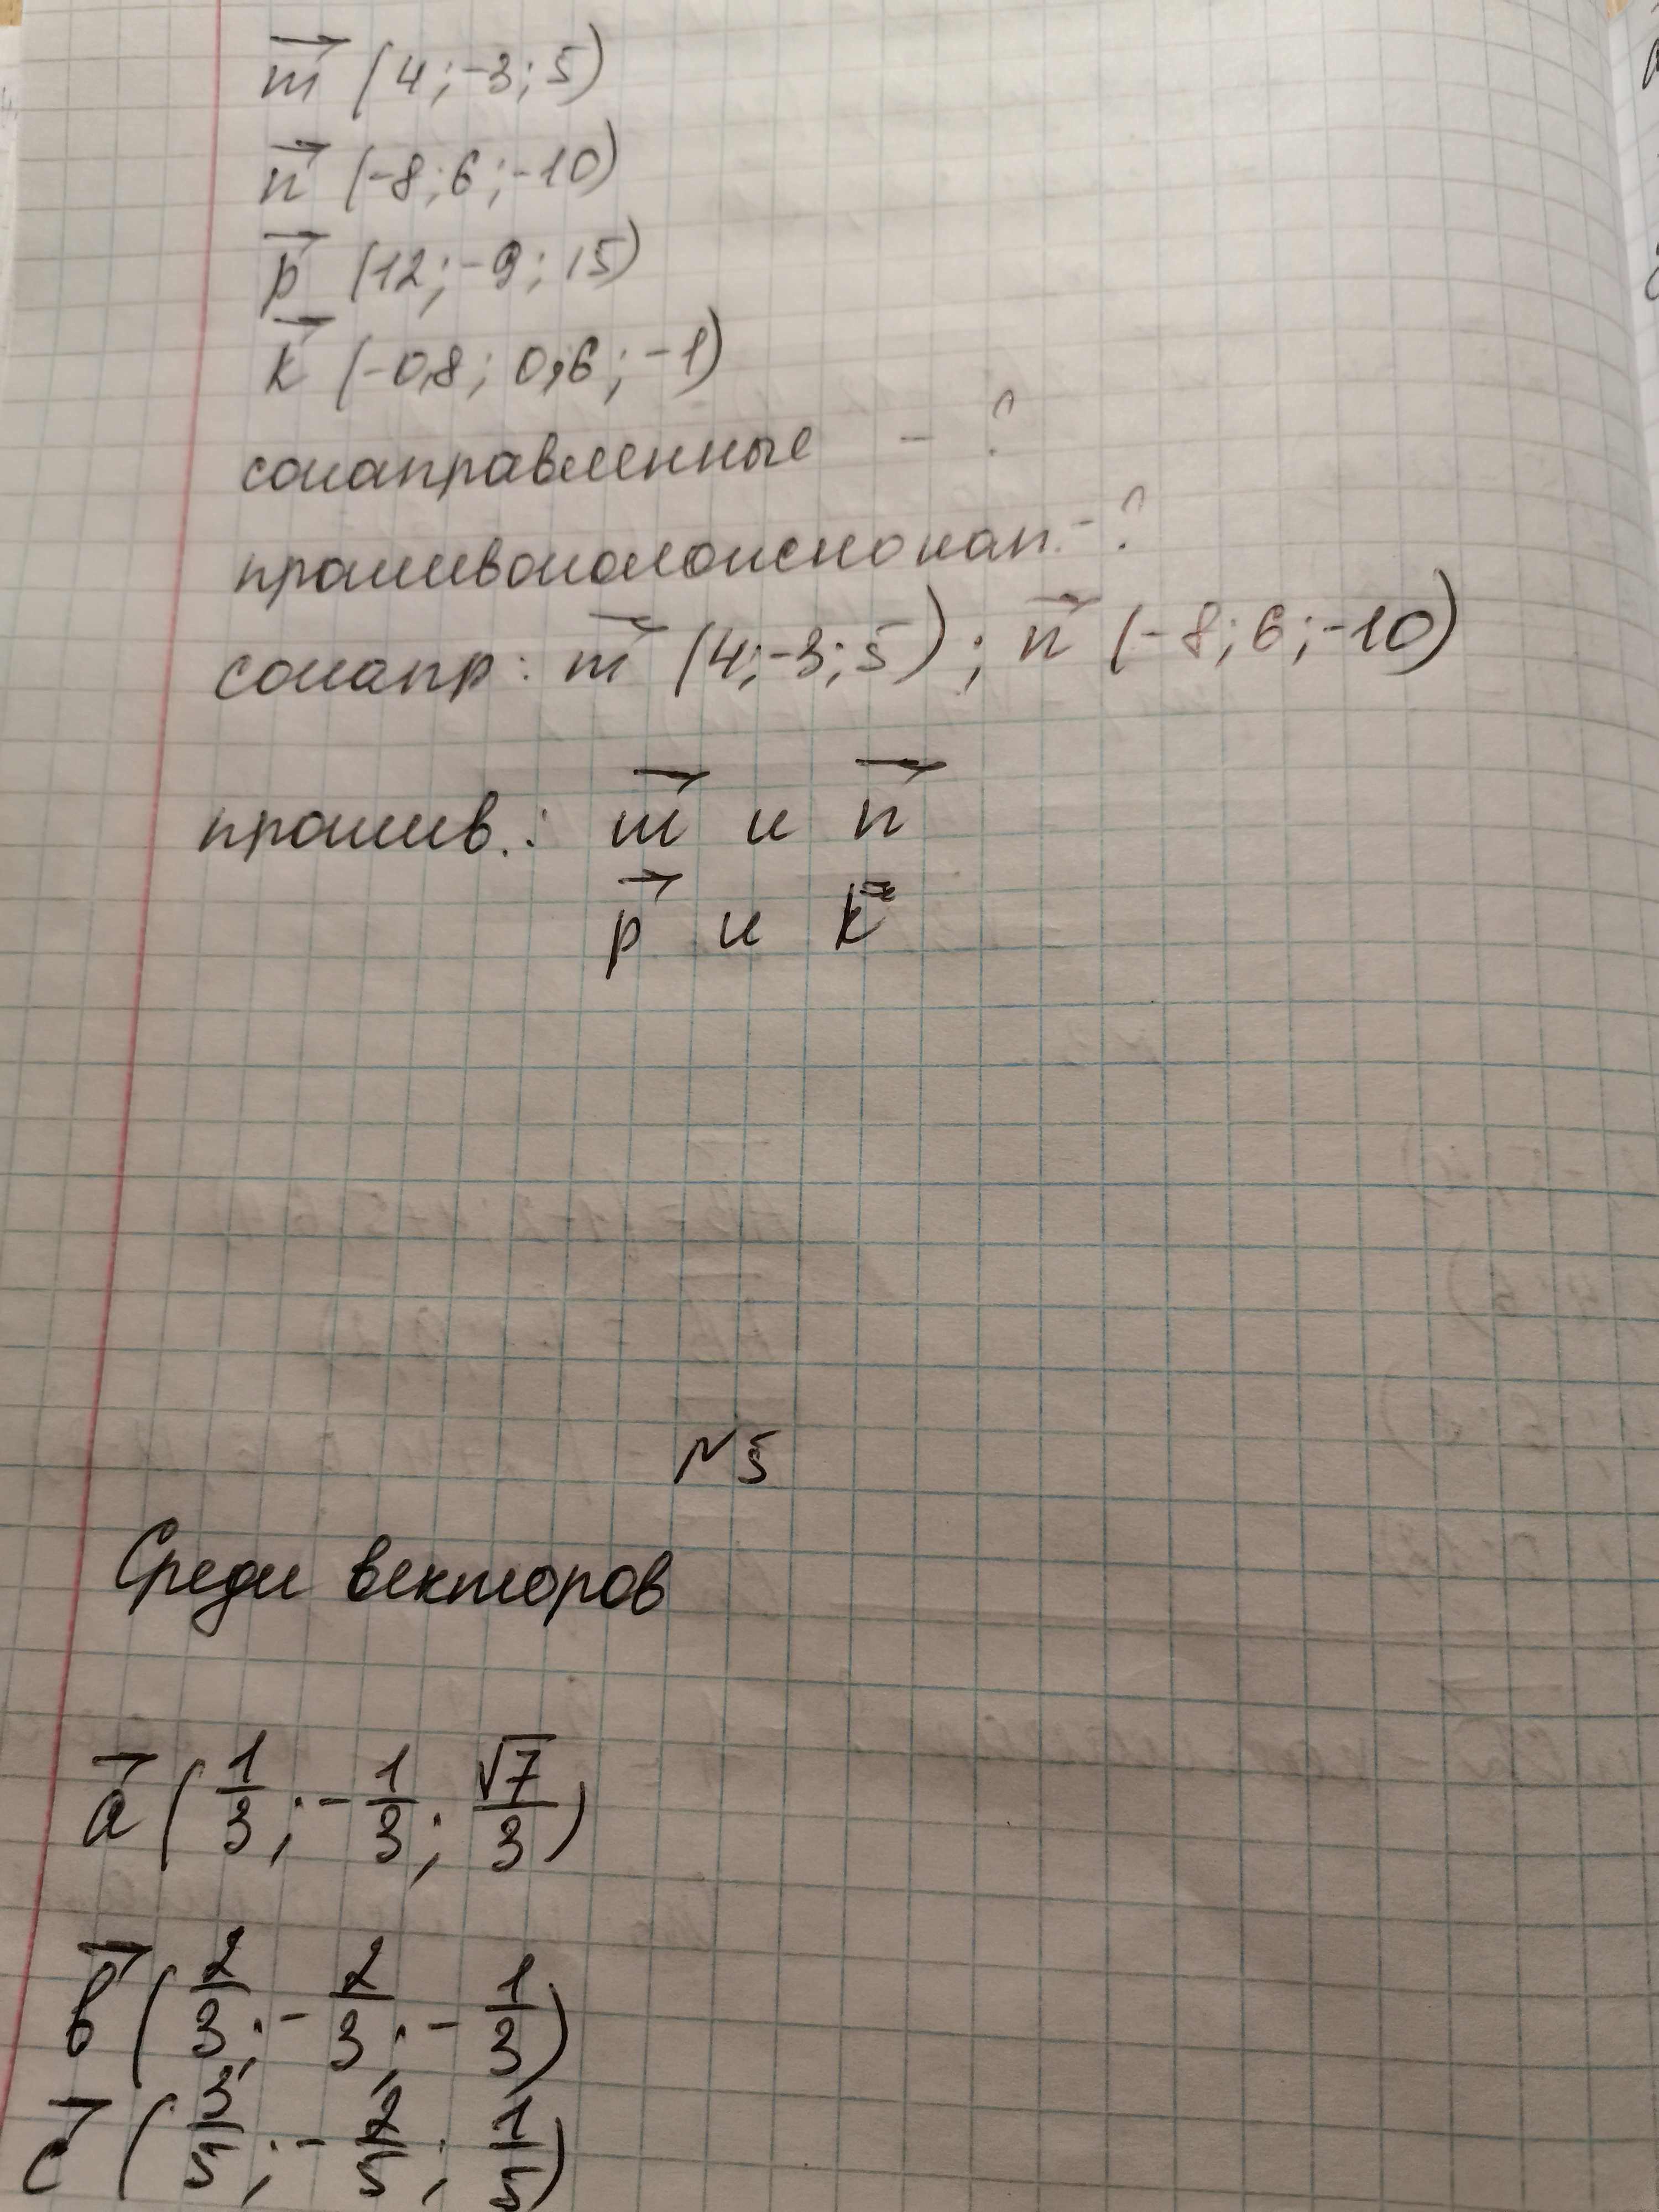 m⃗ (4; -3; 5)
n⃗ (-8; 6; -10)
p⃗ (12; -9; 15)
k⃗ (-0,8; 0,6; -1)
сонаправленные - ?
противоположнонап. - ?
сонапр: m⃗ (4; -3; 5); n⃗ (-8; 6; -10)
против.: m⃗ и n⃗
p⃗ и k⃗
N5
Среди векторов
a⃗ (1/3; -1/3; √7/3)
b⃗ (2/3; -2/3; -1/3)
c⃗ (3/5; -2/5; 1/5)